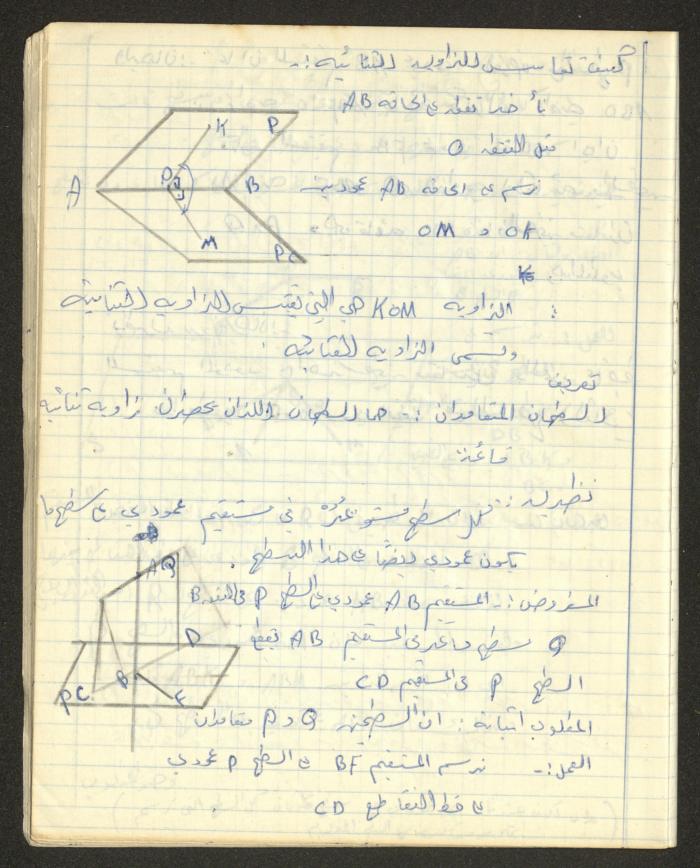 كيف تقاس الزاويه الثنائيه :-
نأخذ نقطه على الحافه AB
مثل النقطه O
نرسم على الحافه AB عموديين
OK و OM
K
P
O
A
B
M
P
: الزاويه KOM هي التي تقيس الزاويه الثنائيه
وتسمى الزاويه الثنائيه
تعريف
السطحان المتعامدان :- هما السطحان اللذان يحصران زاويه ثنائيه
قائمة
نظريه : كل سطح مستو عمود في مستقيم عمودي على سطح ما
يكون عمودي أيضاً على هذا السطح .
المفروض :- المستقيم AB عمودي على السطح P في النقطه B
Q سطح ما مار في المستقيم AB يقطع
السطح P في المستقيم CD
المطلوب اثباته : ان السطحين Q و P متعامدان
العمل :- نرسم المستقيم BF في السطح P عمودي
على خط التقاطع CD
A
Q
D
P
C
B
F